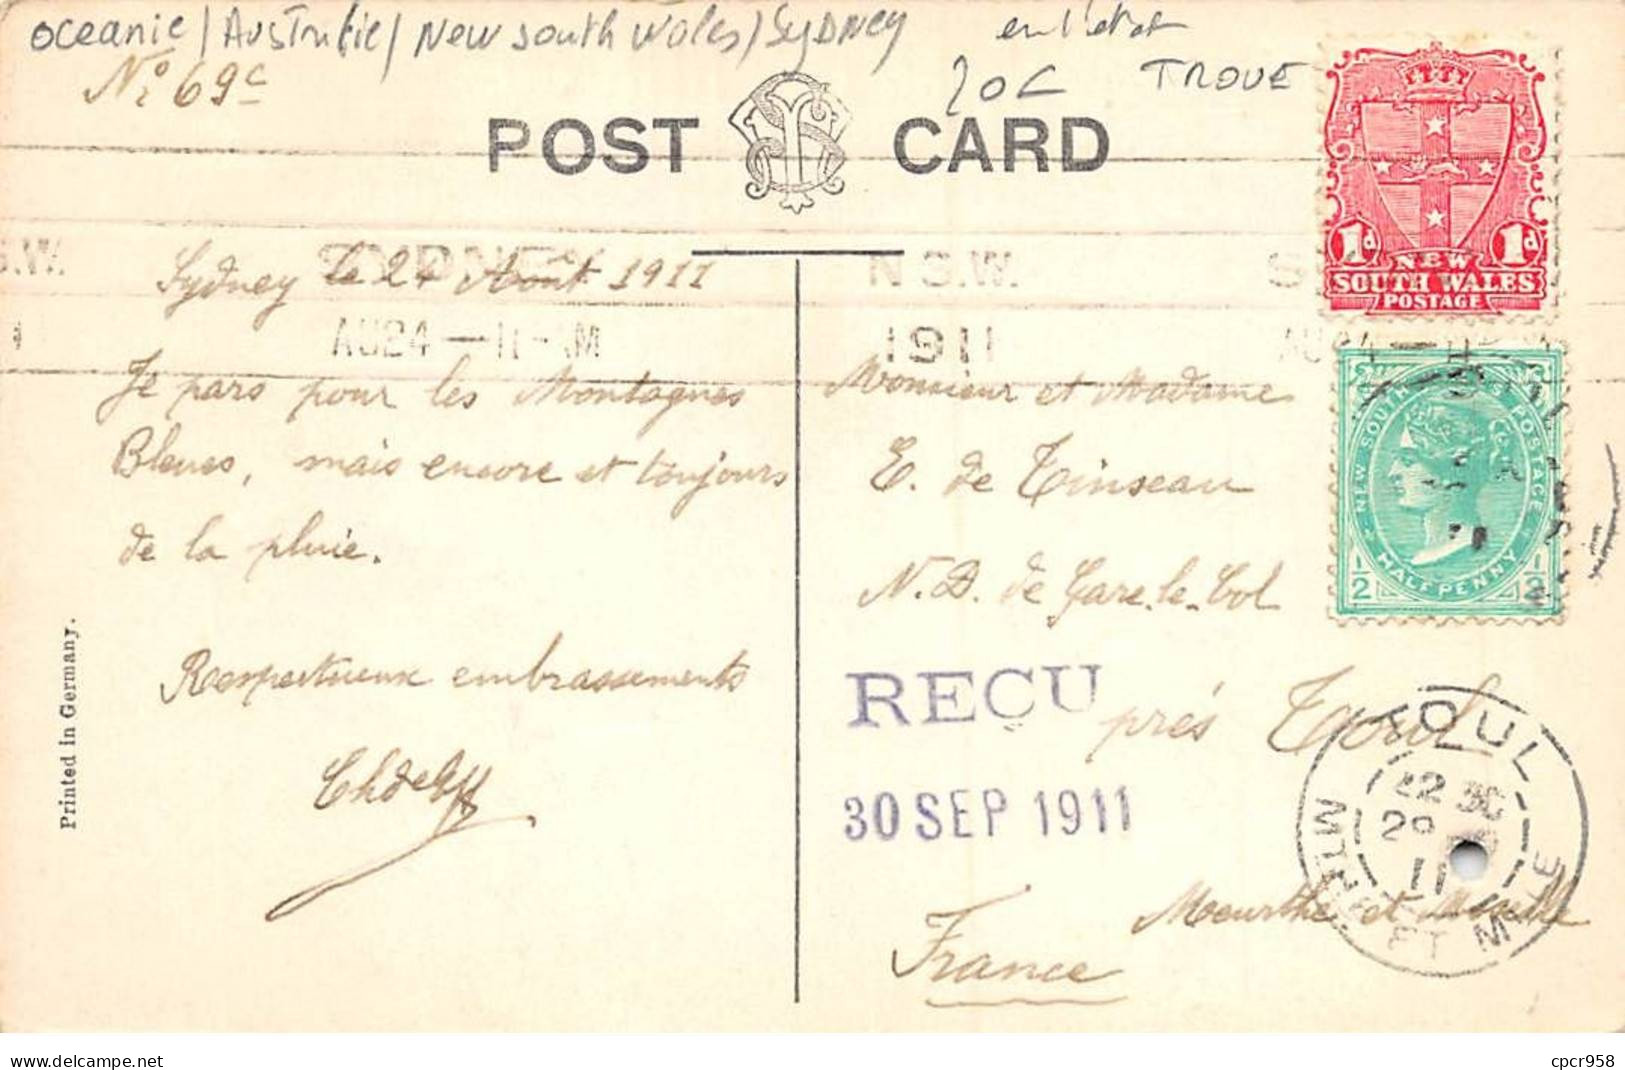 Oceanie / Australie / New south Wales / Sydney
en l'etat
No 69c
20c TROUE
POST CARD
S.W. SYDNEY N.S.W. S
AU24 — 11 - AM 1911 AU24 — 11
Sydney le 24 Août 1911
Je pars pour les Montagnes
Bleues, mais encore et toujours
de la pluie.
Respectueux embrassements
Printed in Germany.
1d 1d
NEW
SOUTH WALES
POSTAGE
NEW SOUTH POSTAGE
1/2 HALFPENNY 1/2
Monsieur et Madame
E. de Tinseau
N. D. de Gare-le-Col
près Toul
Meurthe et Moselle
France
REÇU
30 SEP 1911
TOUL
MTHE ET MLLE
cpcr958